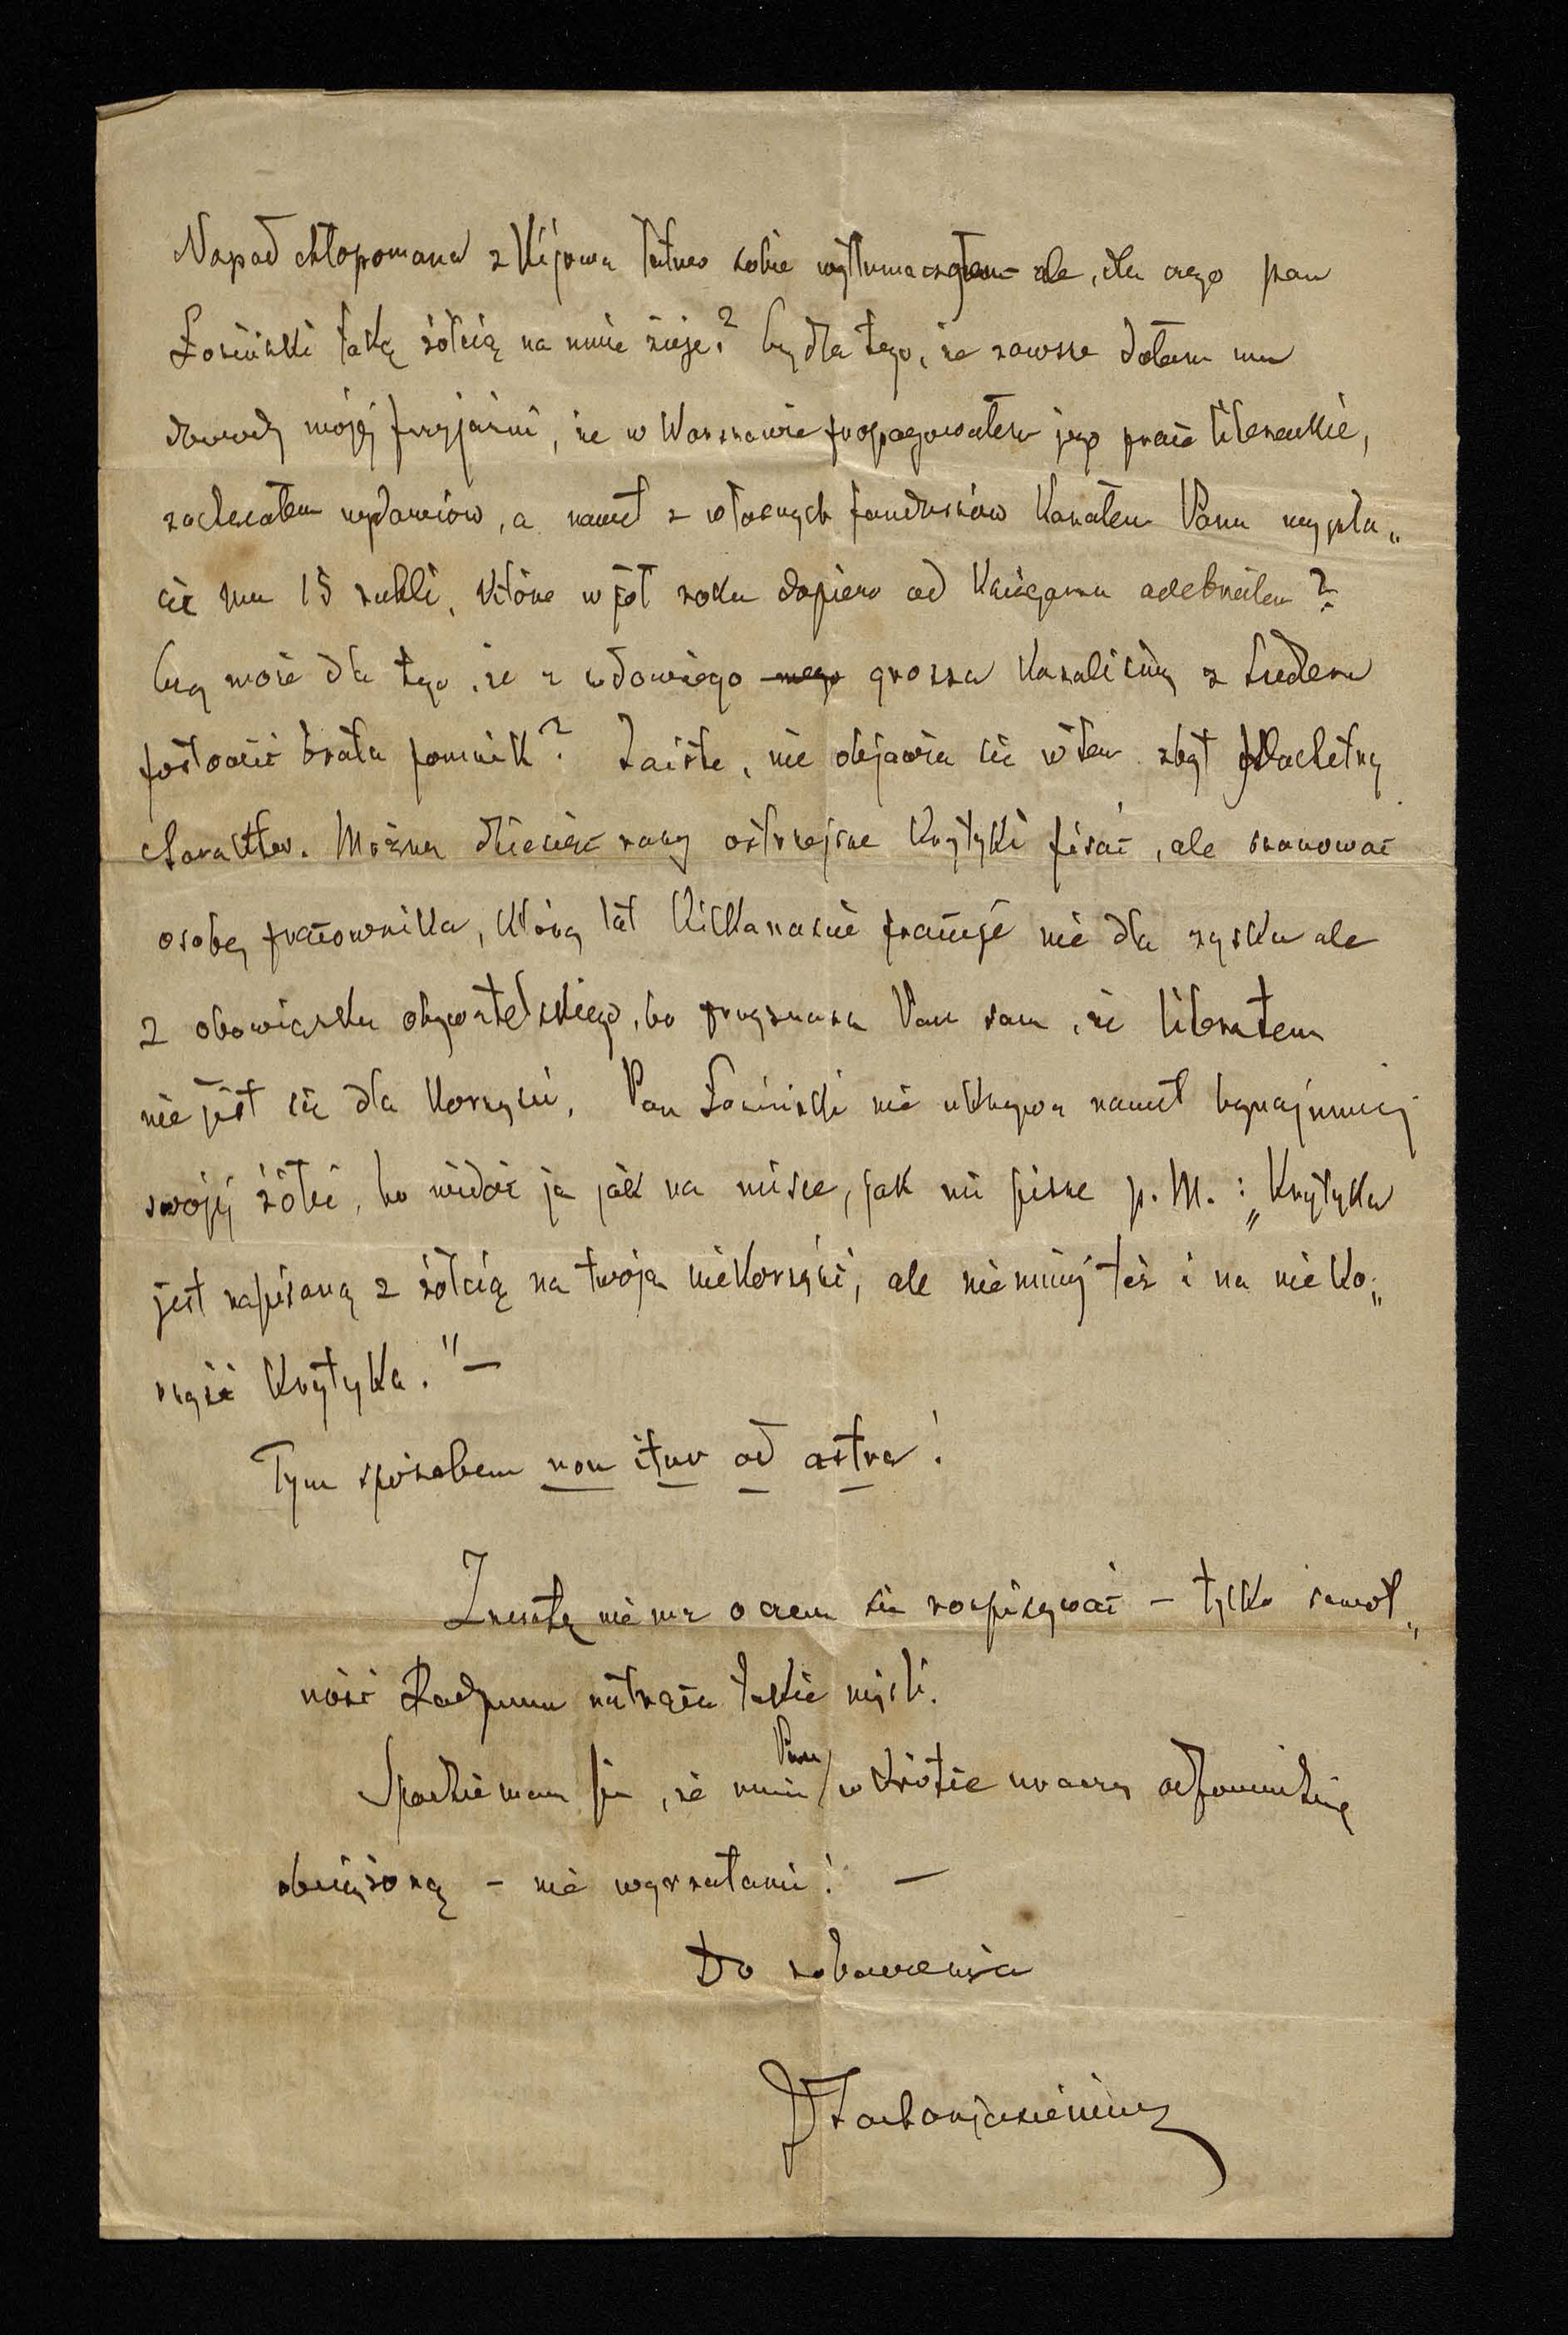 Napad chłopomana z Kijowa łatwo sobie wytłumaczyłem ale, dla czego pan
Łoziński taką żółcią na mnie zieje? Czy dla tego, że zawsze dałem mu
dowody mojéj przyjaźni, że w Warszawie propagowałem jego prace literackie,
zachęcałem wydawców, a nawet z własnych funduszów kazałem Panu wypła„
cić mu 15 rubli, które w pół roku dopiero od księgarza odebrałem?
Czy może dla tego, że z wdowiego grosza kazaliśmy z
postawić bratu pomnik? Zaiste, nie objawia się w tem zbyt szlachetny
charakter. Można dziesięć razy ostrzejsze krytyki pisać, ale szanować
osobę pracownika, który lat kilkanaście pracuje nie dla zysku ale
z obowiązku obywatelskiego, bo przyznasz Pan sam, że literatem
nie jest się dla korzyści. Pan Łoziński nie ukrywa nawet bynajmniej
swojéj żółci, bo widać ją jak na misce, jak mi pisze p. M.: „Krytyka
jest napisaną z żółcią na twoją niekorzyść, ale niemniéj też i na nieko„
rzyść krytyka." —
Tym sposobem non itur ad astra!
Zresztą nie ma o czem się rozpisywać – tylko samot„
ność Radymna natrąca takie myśli.
Spodziewam się, że mnie Pan wkrótce uraczy odpowiedzią
obciążoną – nie wyrzutami! —
Do zobaczenia
JZacharjasiewicz